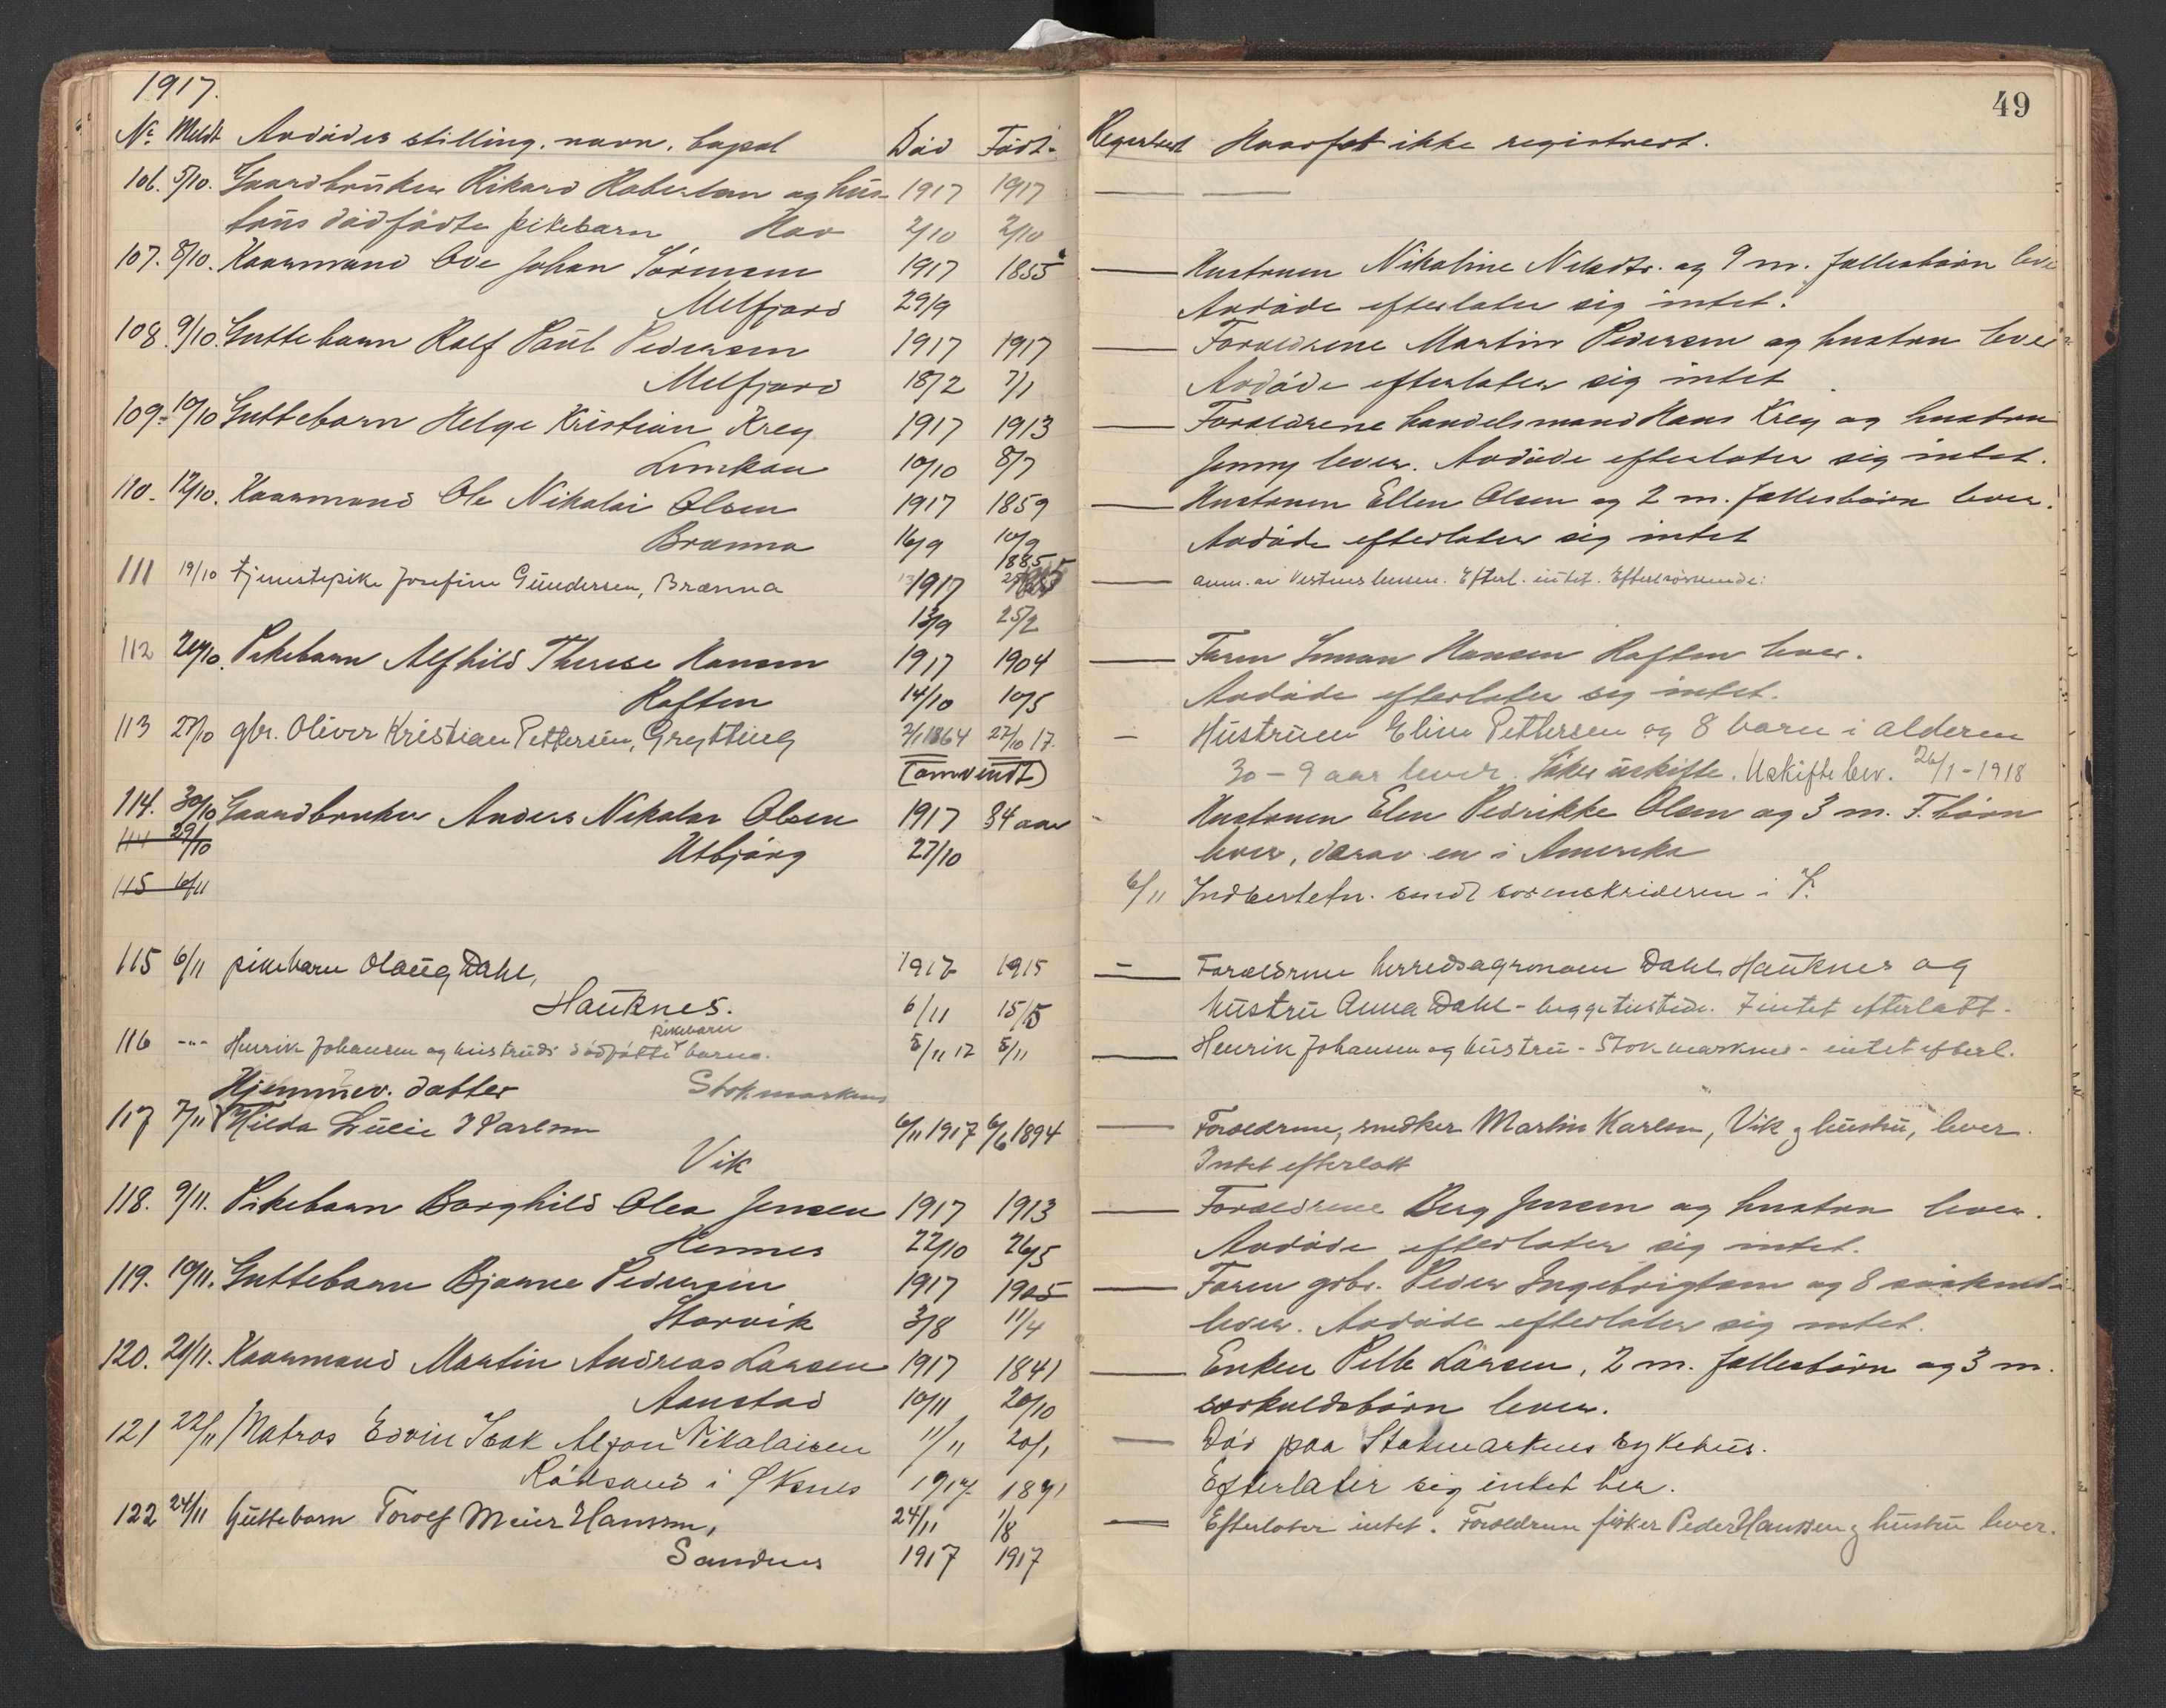 1917.
No Meldt Avdødes stilling. navn. bopæl Død Født.
106. 5/10. Gaardbruker Rikard Robertsen og hus- 1917 1917
truis dødfødte pikebarn 2/10 2/10
107. 8/10. Kaarmand Ole Johan Sørensen 1917 1855
Melfjord 29/9
108. 9/10. Guttebarn Rolf Paul Pedersen 1917 1917
Melfjord 18/2 7/1
109. 10/10 Guttebarn Helge Kristian Krey 1917 1913
10/10 8/7
110. 12/10. Kaarmand Ole Nikolai Olsen 1917 1859
Brænna 16/9 10/9
111 19/10 tjenestepike Josefine Gundersen, Brænna 1917 1885
13/9 25/2
112 20/10. Pikebarn Alfhild Therese Hansen 1917 1904
Raften 14/10 10/5
113 27/10 gbr. Oliver Kristian Pettersen, Grytting 2/1 1864 27/10 17.
(omvendt)
114. 30/10 Gaardbruker Anders Nikolai Olsen 1917 84 aar
111 29/10 Utbjørg 27/10
115 6/11
115 6/11 pikebarn Olaug Dahl, 1917 1915
Hauknes. 6/11 15/5
pikebarn
116 -"- Henrik Johansen og hustrus dødfødte barn. 5/11 17 5/11
Hjemmev. datter Stokmarknes
117 7/11 Hilda Lucie Karlsen 6/11 1917 6/6 1894
Vik
118. 9/11. Pikebarn Borghild Olea Jensen 1917 1913
Hennes 22/10 26/5
119. 10/11. Guttebarn Bjarne Pedersen 1917 1905
Storvik 3/8 11/4
120. 21/11. Kaarmand Martin Andreas Larsen 1917 1841
Aanstad 10/11 20/10
121 22/11 Matros Edvin Isak Alfon Nikolaisen 11/11 20/1
i Øksnes 1917 1891
122 24/11 Guttebarn Torolf Meier Hanssen, 24/11 1/8
Sandnes 1917 1917
49
Registrert Hvorfor ikke registrert.
Hustruen Nikoline Nilsdtr. og 9 m. fællesbørn lever
Avdøde efterlater sig intet.
Forældrene Martin Pedersen og hustru lever
Avdøde efterlater sig intet
Forældrene handelsmand Hans Krey og hustru
Jenny lever. Avdøde efterlater sig intet.
Hustruen Ellen Olsen og 2 m. fællesbørn lever.
Avdøde efterlater sig intet
anm. av Efterl. intet.
Faren Hansen Raften lever.
Avdøde efterlater sig intet.
Hustruen Eline Pettersen og 8 barn i alderen
30 – 9 aar lever. Søker uskifte. Uskiftebev. 26/1-1918
Hustruen Elen Pedrikke Olsen og 3 m. F. børn
lever, derav en i Amerika
6/11 Indberetn. sendt sorenskriveren i
Forældrene herredsagronom Dahl Hauknes og
hustru Anna Dahl - begge tilstede. Intet efterlatt.
Henrik Johansen og hustru - Stokmarknes - intet efterl.
Forældrene, snedker Martin Karlsen, Vik og hustru, lever.
Intet efterlatt
Forældrene Berg Jensen og hustru lever.
Avdøde efterlater sig intet.
Faren gbr. Peder Ingebrigtsen og 8 søskende
lever. Avdøde efterlater sig intet.
Enken Larsen, 2 m. fællesbørn og 3 m.
særkuldsbørn lever.
Død paa Stokmarknes sykehus.
Efterlater sig intet her.
Efterlater intet. Forældrene fisker Peder Hanssen og hustru lever.